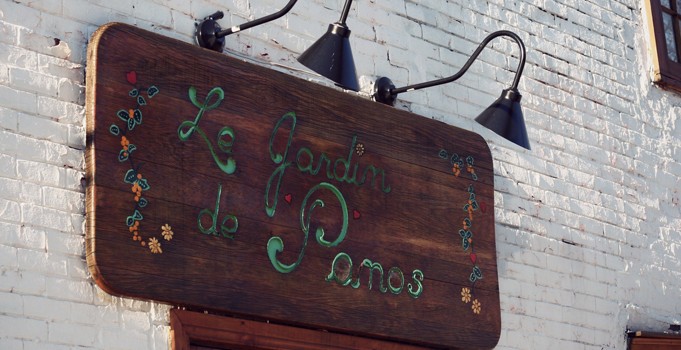 Le Jardin
de Panos